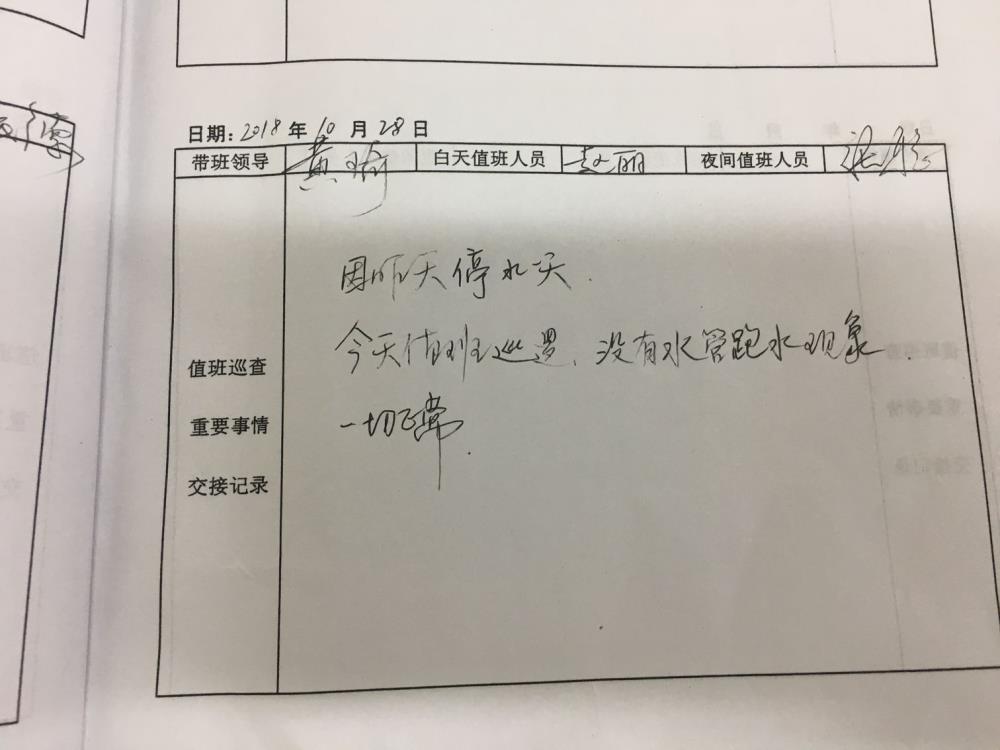 日期：2018年10月28日
带班领导 黄琦 白天值班人员 赵丽 夜间值班人员
因昨天停水一天.
今天值班巡逻，没有水管跑水现象
一切正常.
值班巡查
重要事情
交接记录